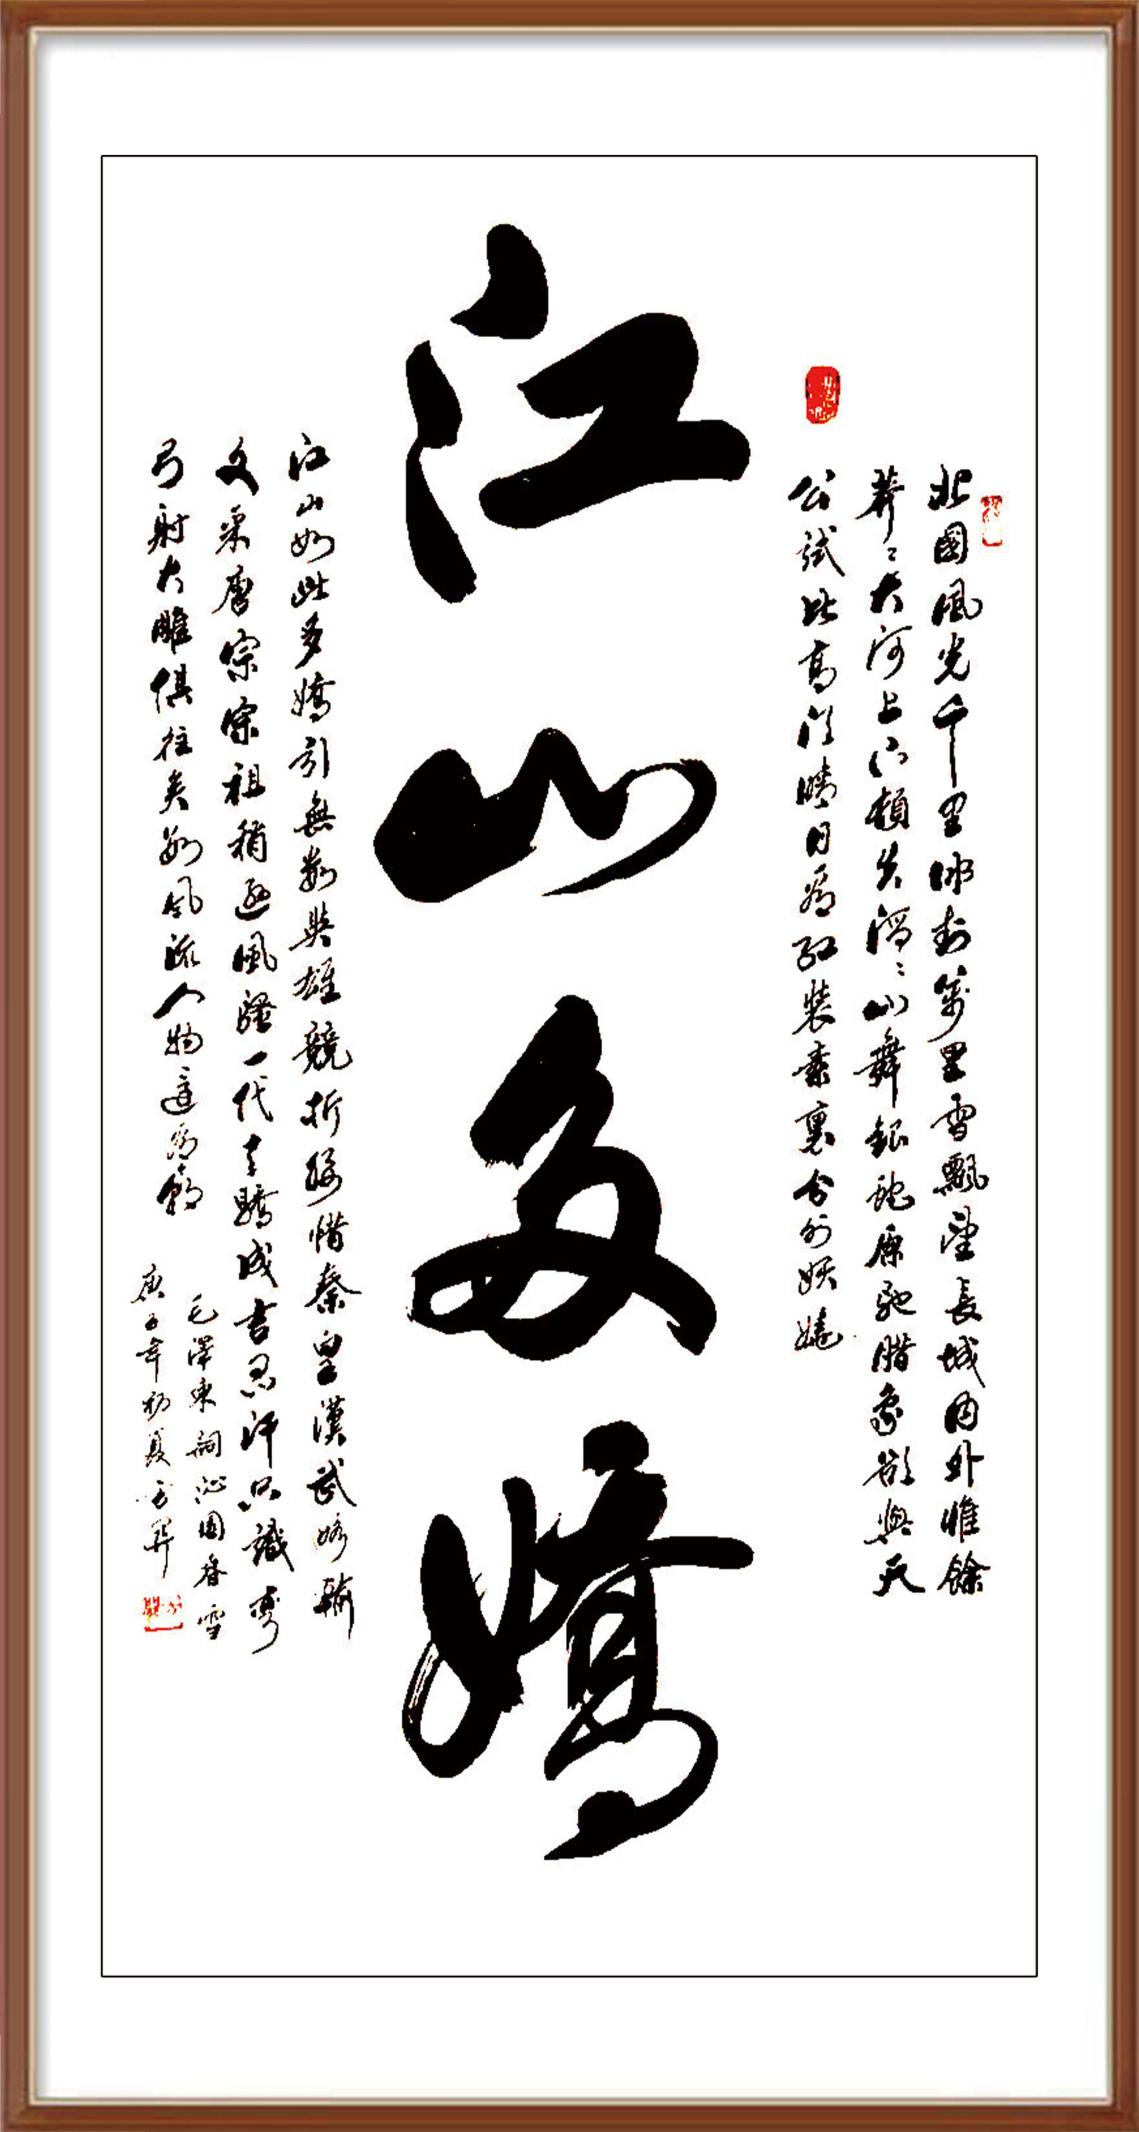 北國風光千里冰封萬里雪飄望長城內外惟餘
莽〻大河上下頓失滔〻山舞銀蛇原馳腊象欲與天
公試比高須晴日看紅裝素裹分外妖嬈
江山多嬌
江山如此多嬌引無數英雄競折腰惜秦皇漢武略輸
文采唐宗宋祖稍遜風騷一代天驕成吉思汗只識彎
弓射大雕俱往矣數風流人物還看今朝
毛澤東詞沁園春雪
庚子年初夏